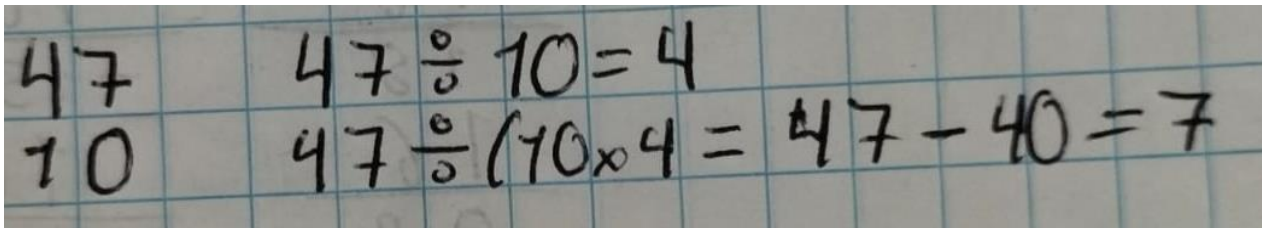 47 47 ÷ 10 = 4
10 47 ÷ (10 x 4 = 47 - 40 = 7